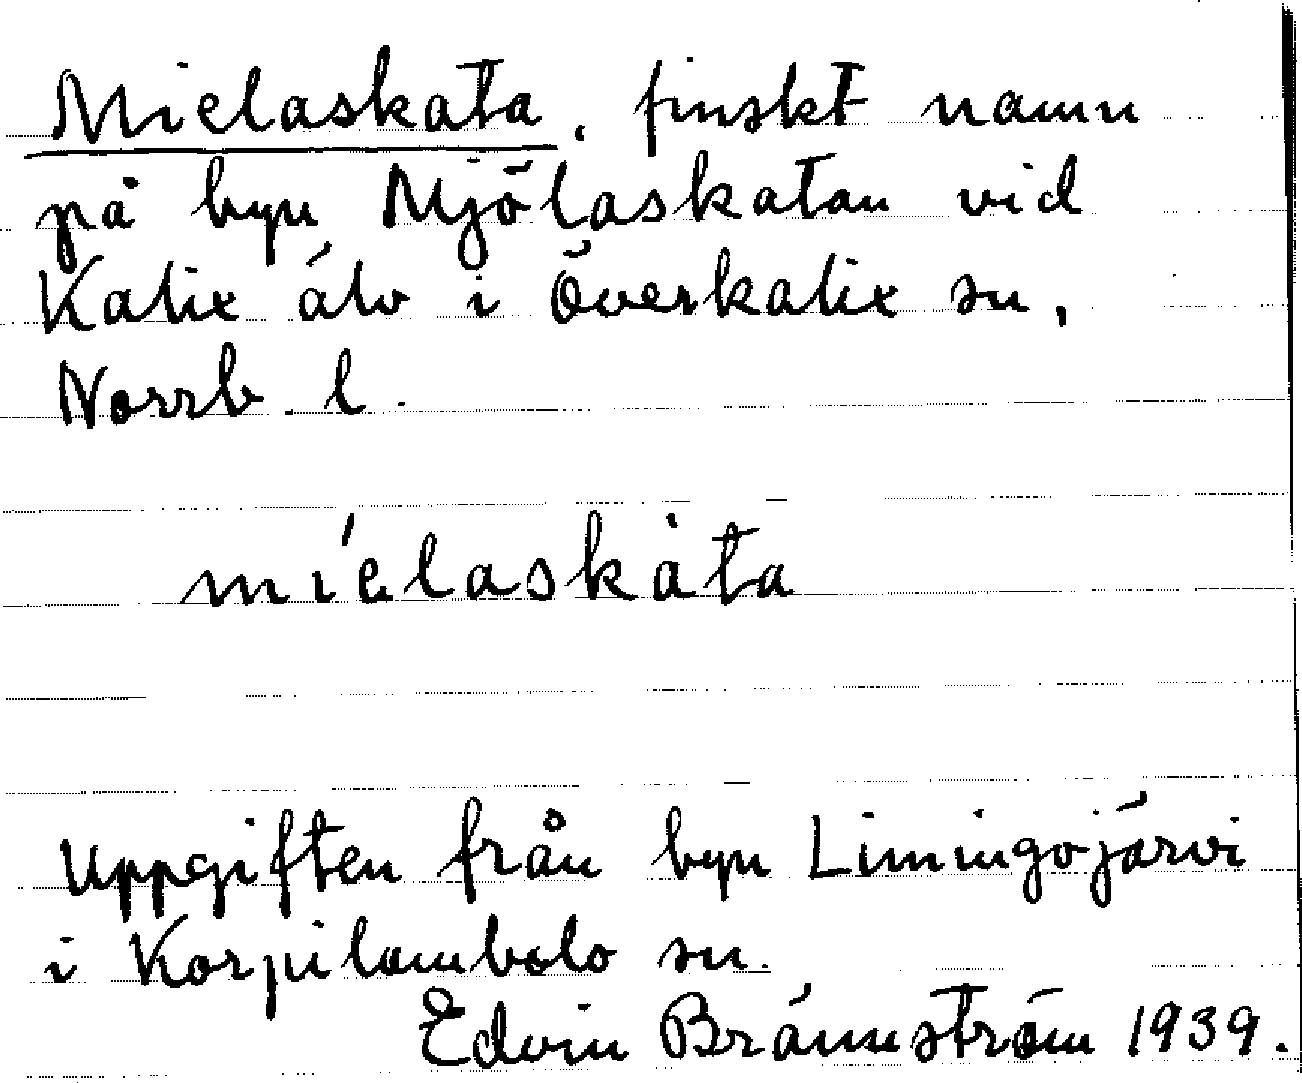 Mielaskata, finskt namn
på byn Mjölaskatan vid
Kalix älv i Överkalix sn,
Norrb. l.
míelaskàta
Uppgiften från byn Limingojärvi
i Korpilombolo sn.
Edvin Brännström 1939.